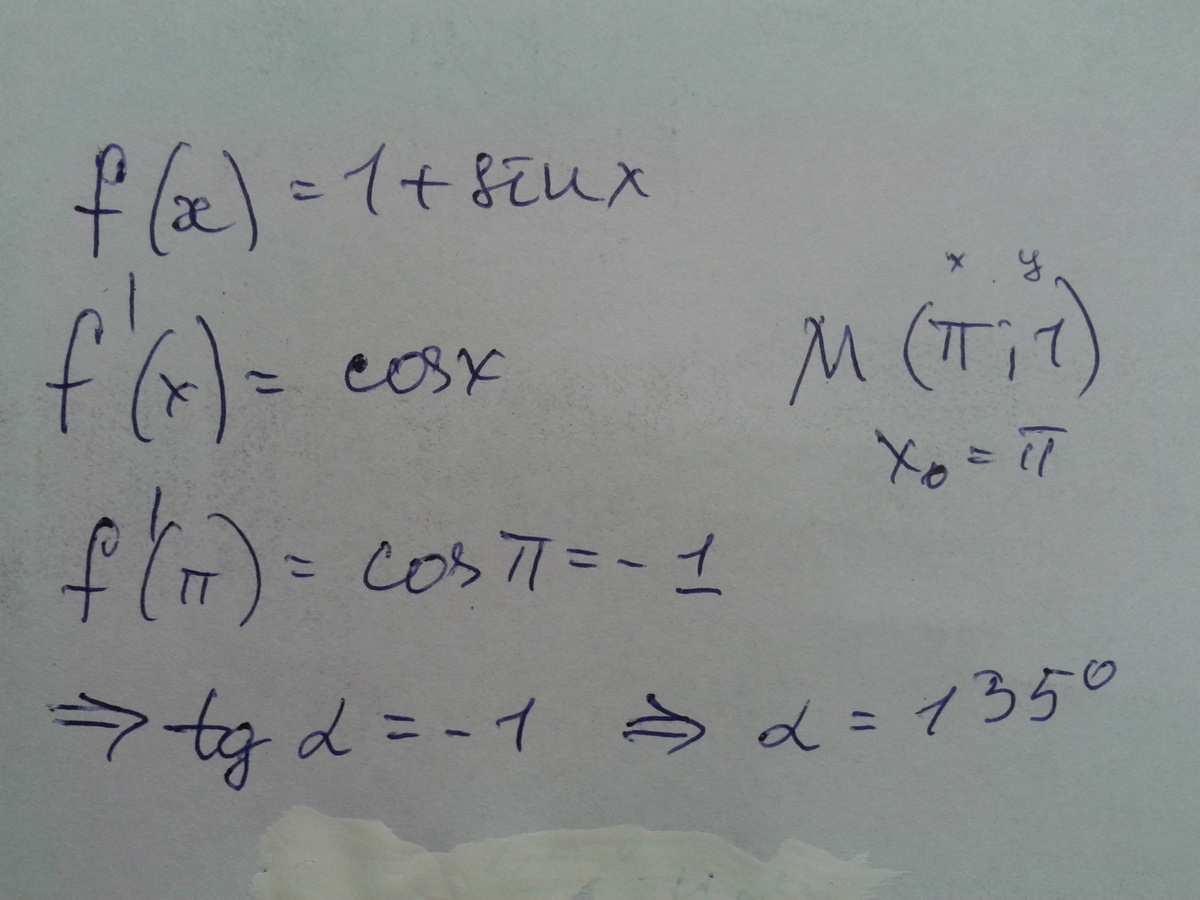 f(x) = 1 + sin x
f'(x) = cos x
x y
M (π; 1)
x₀ = π
f'(π) = cos π = - 1
⇒ tg α = - 1 ⇒ α = 135°